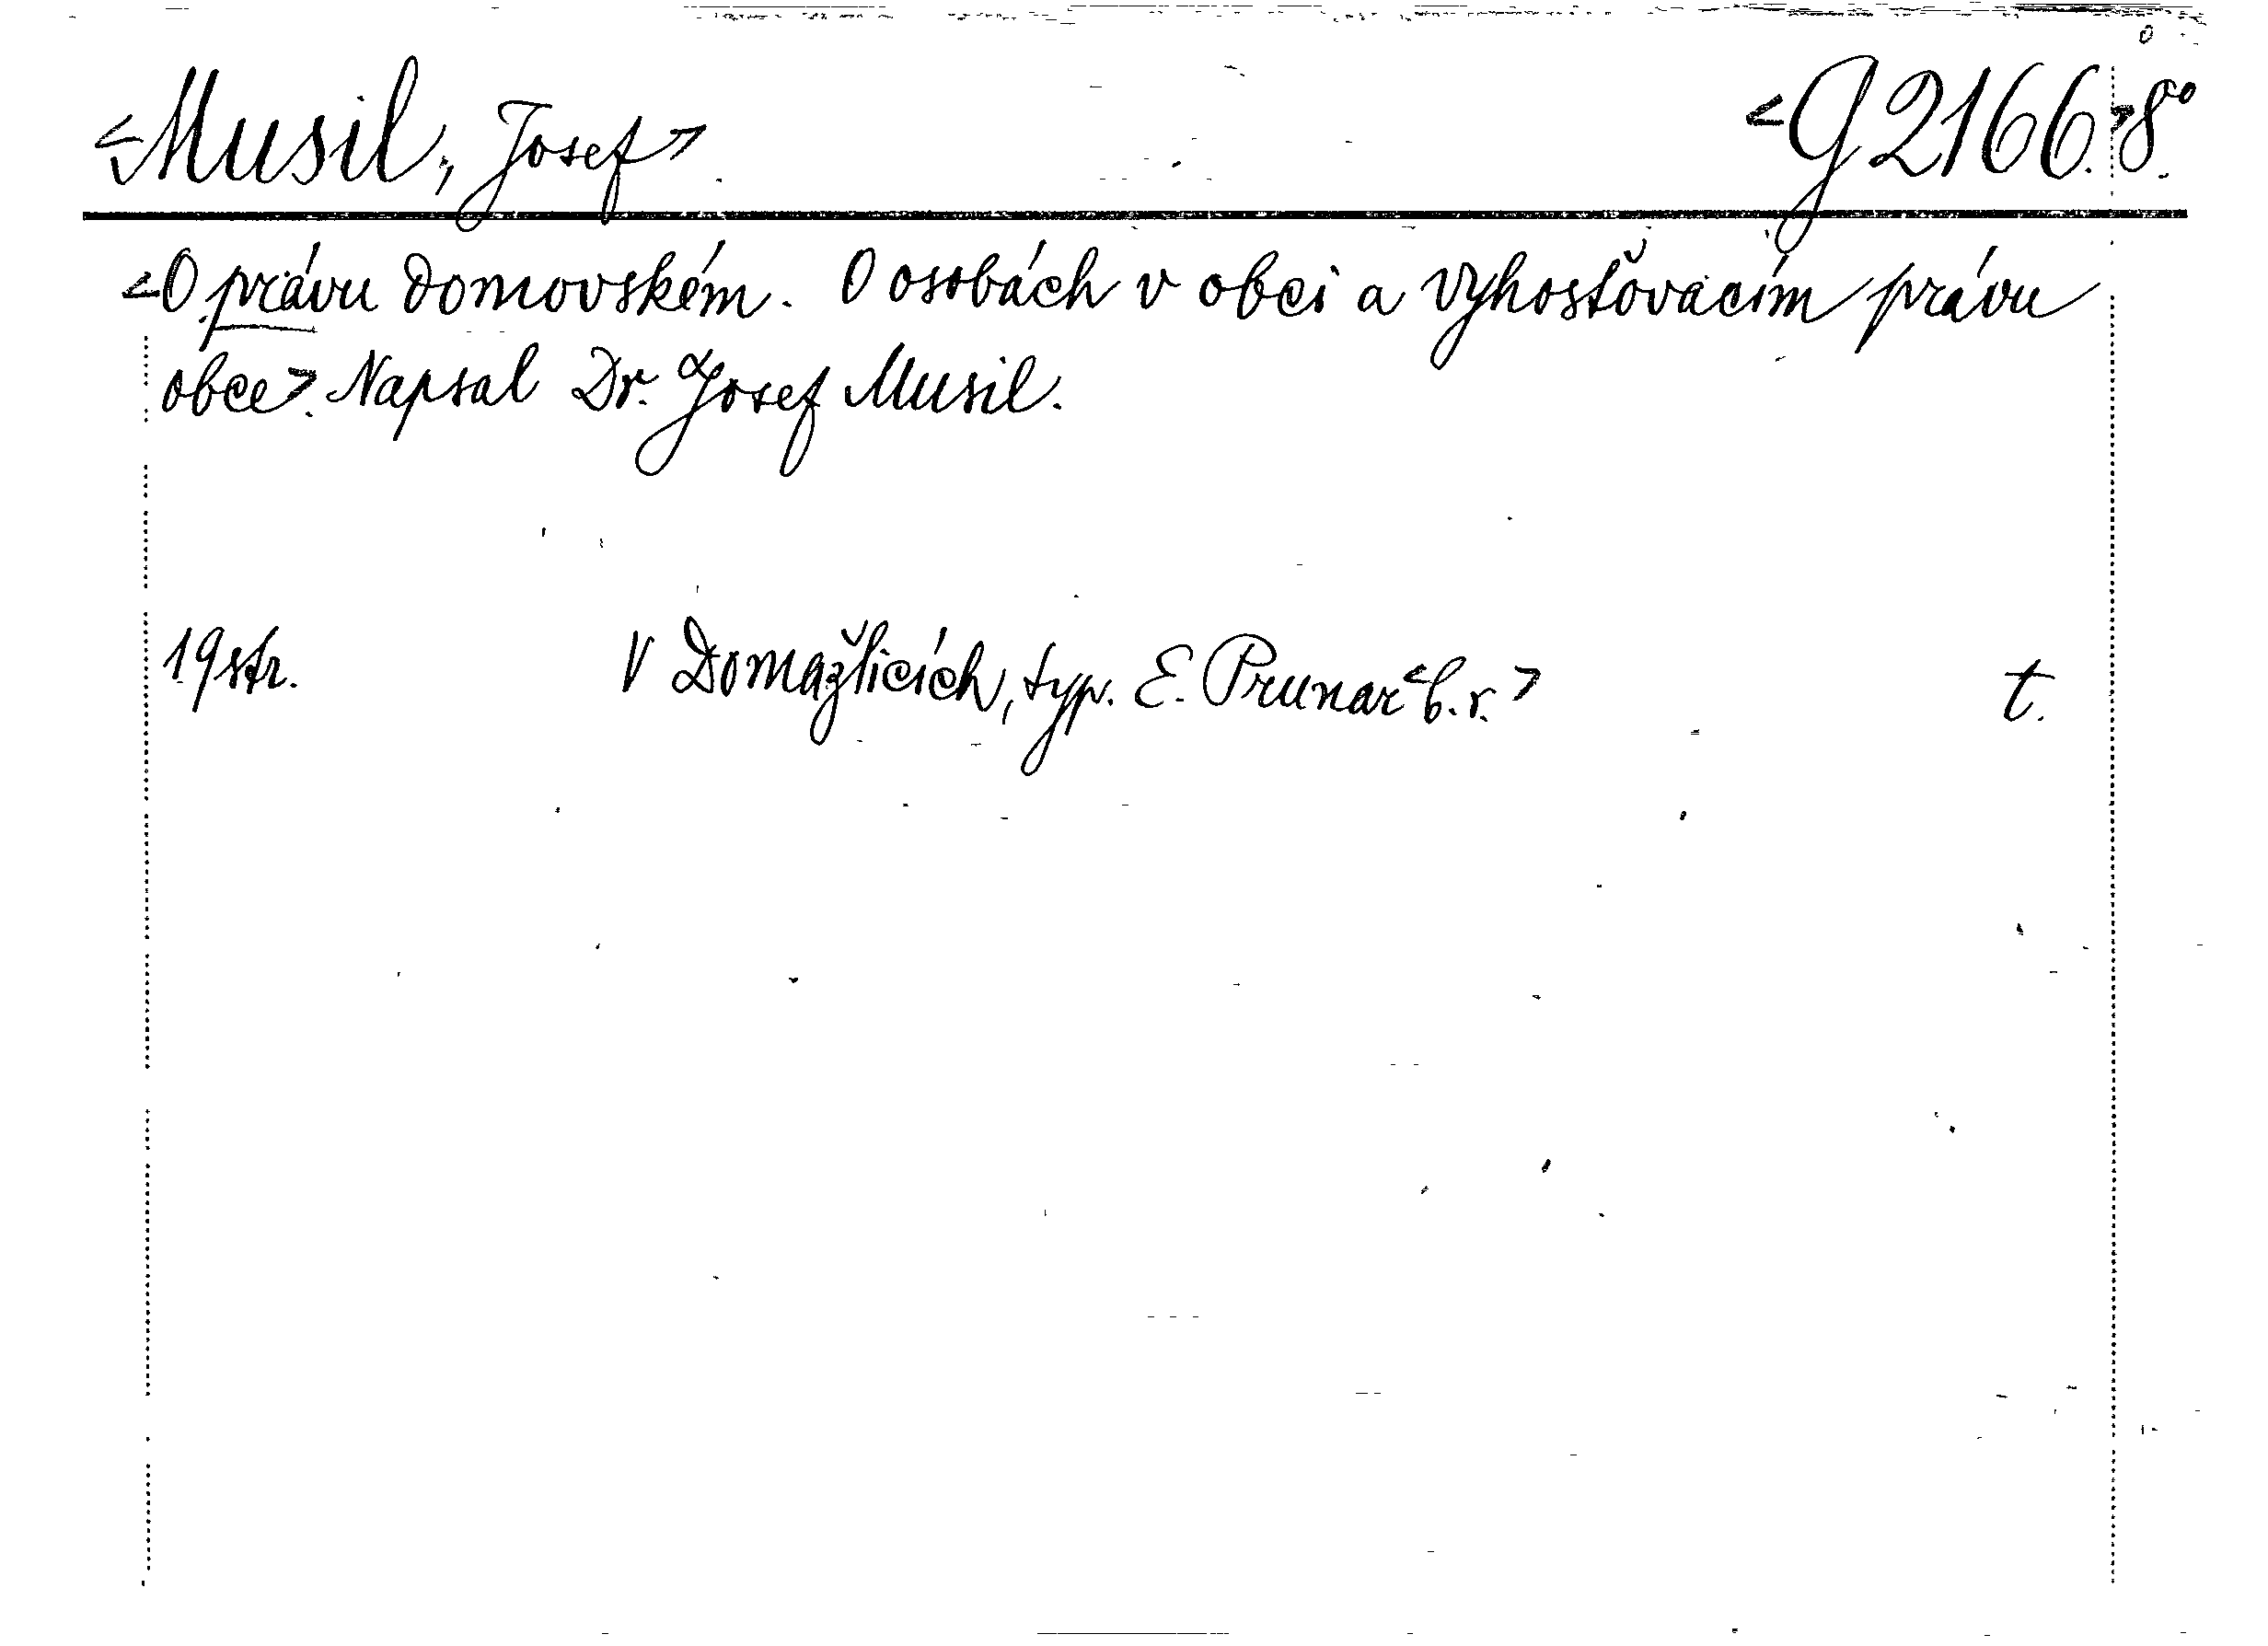 <Musil, Josef> <G 2166.> 8°.
<O právu domovském. O osobách v obci a vyhošťovacím právu
obce>. Napsal Dr. Josef Musil.
19 str. V Domažlicích, typ. E. Prunar <b. r.> t.